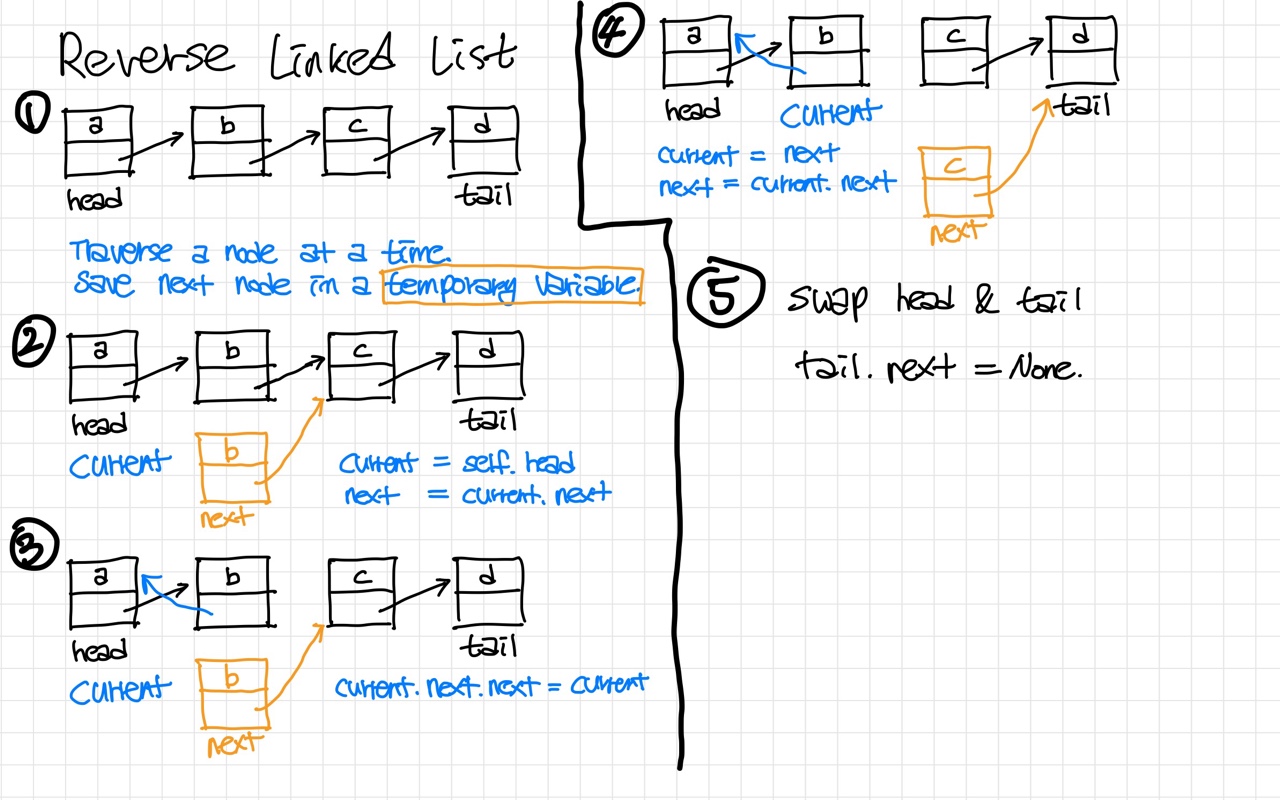 Reverse Linked List
①
a b c d
head tail
Traverse a node at a time.
Save next node in a temporary variable.
②
a b c d
head tail
current b current = self.head
next = current.next
next
③
a b c d
head tail
current b current.next.next = current
next
④
a b c d
head current tail
current = next c
next = current.next
next
⑤ swap head & tail
tail.next = None.